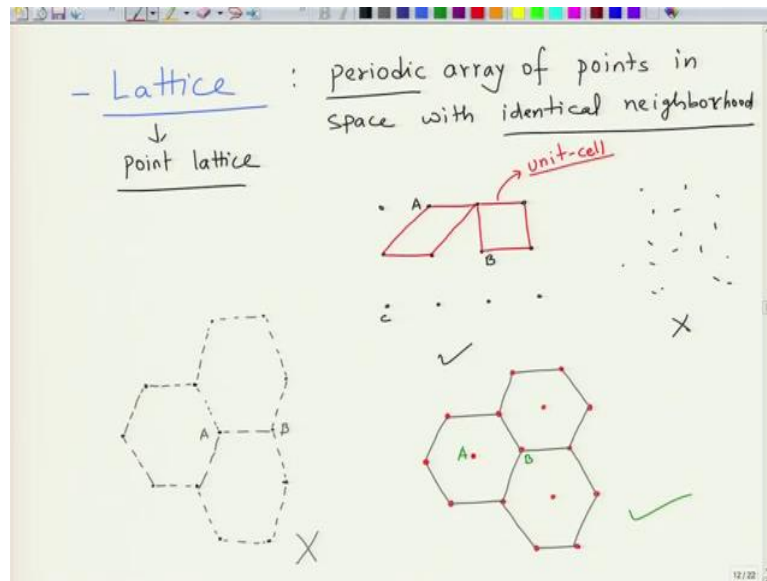 - Lattice : periodic array of points in
space with identical neighborhood
point lattice
unit-cell
A
B
C
A B
A
B
12/22